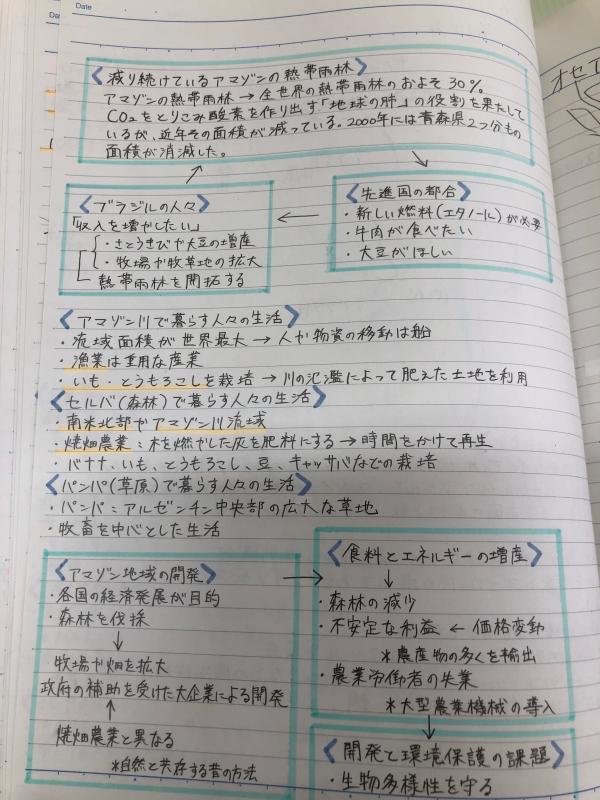 Date
Da
オセイ
〈減り続けているアマゾンの熱帯雨林〉
アマゾンの熱帯雨林→全世界の熱帯雨林のおよそ30%。
CO₂をとりこみ酸素を作り出す「地球の肺」の役割を果たして
いるが、近年その面積が減っている。2000年には青森県2つ分もの
面積が消滅した。
〈ブラジルの人々〉
「収入を増やしたい」
・さとうきびや大豆の増産
・牧場や牧草地の拡大
熱帯雨林を開拓する
〈先進国の都合〉
・新しい燃料(エタノール)が必要
・牛肉が食べたい
・大豆がほしい
〈アマゾン川で暮らす人々の生活〉
・流域面積が世界最大→人や物資の移動は船
・漁業は重要な産業
・いも・とうもろこしを栽培→川の氾濫によって肥えた土地を利用
〈セルバ(森林)で暮らす人々の生活〉
・南米北部やアマゾン川流域
・焼畑農業:木を燃やした灰を肥料にする→時間をかけて再生
・バナナ、いも、とうもろこし、豆、キャッサバなどの栽培
〈パンパ(草原)で暮らす人々の生活〉
・パンパ:アルゼンチン中央部の広大な草地
・牧畜を中心とした生活
〈アマゾン地域の開発〉→
・各国の経済発展が目的
・森林を伐採
↓
牧場や畑を拡大
政府の補助を受けた大企業による開発
↑
焼畑農業と異なる
*自然と共存する昔の方法
〈食料とエネルギーの増産〉
↓
・森林の減少
・不安定な利益←価格変動
*農産物の多くを輸出
・農業労働者の失業
*大型農業機械の導入
↓
〈開発と環境保護の課題〉
・生物多様性を守る